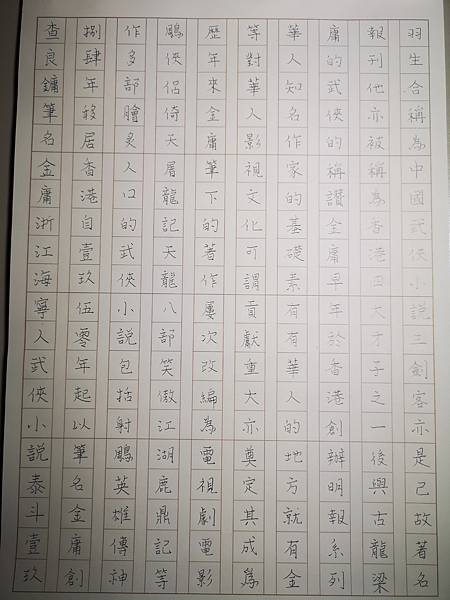 查良鏞筆名金庸浙江海寧人武俠小說泰斗壹玖
捌肆年移居香港自壹玖伍零年起以筆名金庸創
作多部膾炙人口的武俠小說包括射鵰英雄傳神
鵰俠侶倚天屠龍記天龍八部笑傲江湖鹿鼎記等
歷年來金庸筆下的著作屢次改編為電視劇電影
等對華人影視文化可謂貢獻重大亦奠定其成為
華人知名作家的基礎素有有華人的地方就有金
庸的武俠的稱讚金庸早年於香港創辦明報系列
報刊他亦被稱為香港四大才子之一後與古龍梁
羽生合稱為中國武俠小說三劍客亦是已故著名